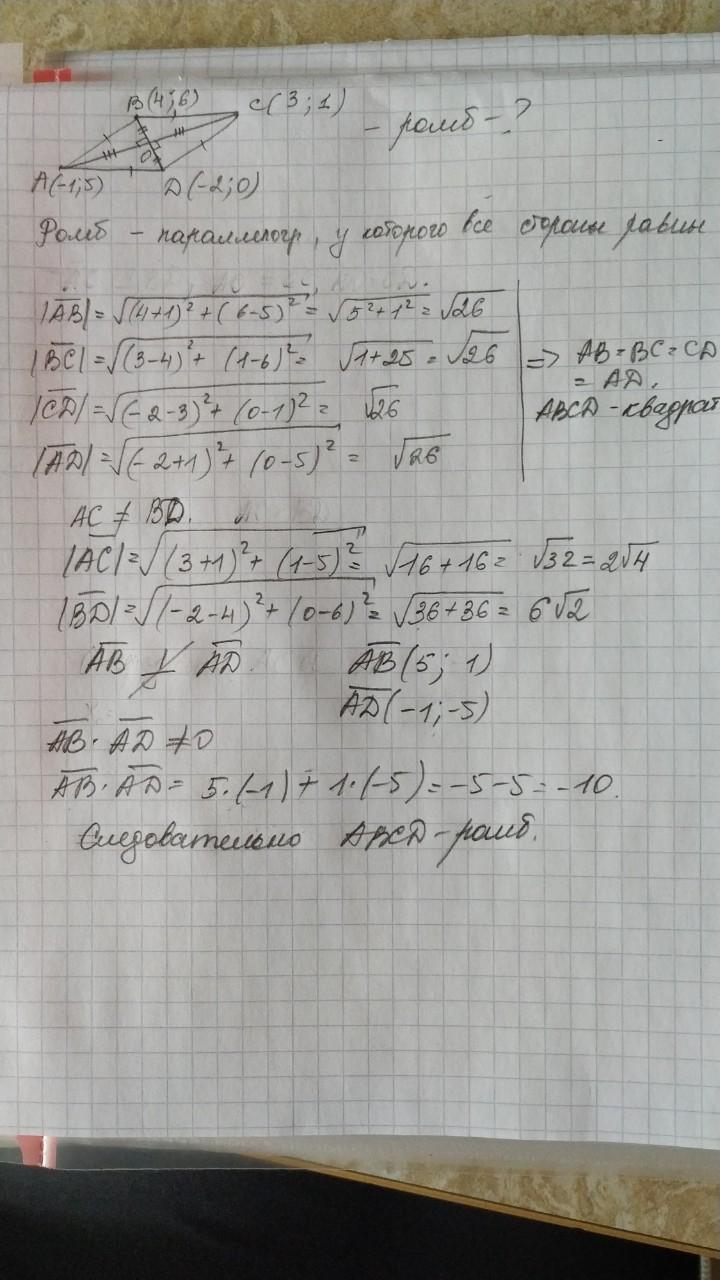 B(4;6)
C(3;1)
- ромб-?
O
A(-1;5)
D(-2;0)
Ромб - параллелогр, у которого все стороны равны
|AB| = √(4+1)² + (6-5)² = √5²+1² = √26
|BC| = √(3-4)² + (1-6)² = √1+25 = √26
|CD| = √(-2-3)² + (0-1)² = √26
|AD| = √(-2+1)² + (0-5)² = √26
=> AB=BC=CD
= AD.
ABCD-квадрат
AC ≠ BD.
|AC| = √(3+1)² + (1-5)² = √16+16 = √32 = 2√4
|BD| = √(-2-4)² + (0-6)² = √36+36 = 6√2
AB ⊥̸ AD
AB(5; 1)
AD(-1;-5)
AB · AD ≠ 0
AB · AD = 5·(-1) + 1·(-5) = -5-5 = -10.
Следовательно ABCD-ромб.